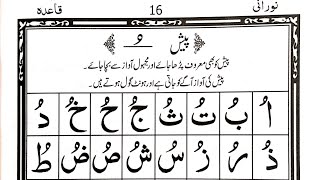 نورانی 16 قاعدہ
پیش ـُ
پیش کو بھی معروف پڑھا جائے اور مجہول آواز سے بچا جائے۔
پیش کی آواز آگے کو جاتی ہے اور ہونٹ گول ہوتے ہیں۔
اُ بُ تُ ثُ جُ حُ خُ دُ
ذُ رُ زُ سُ شُ صُ ضُ طُ